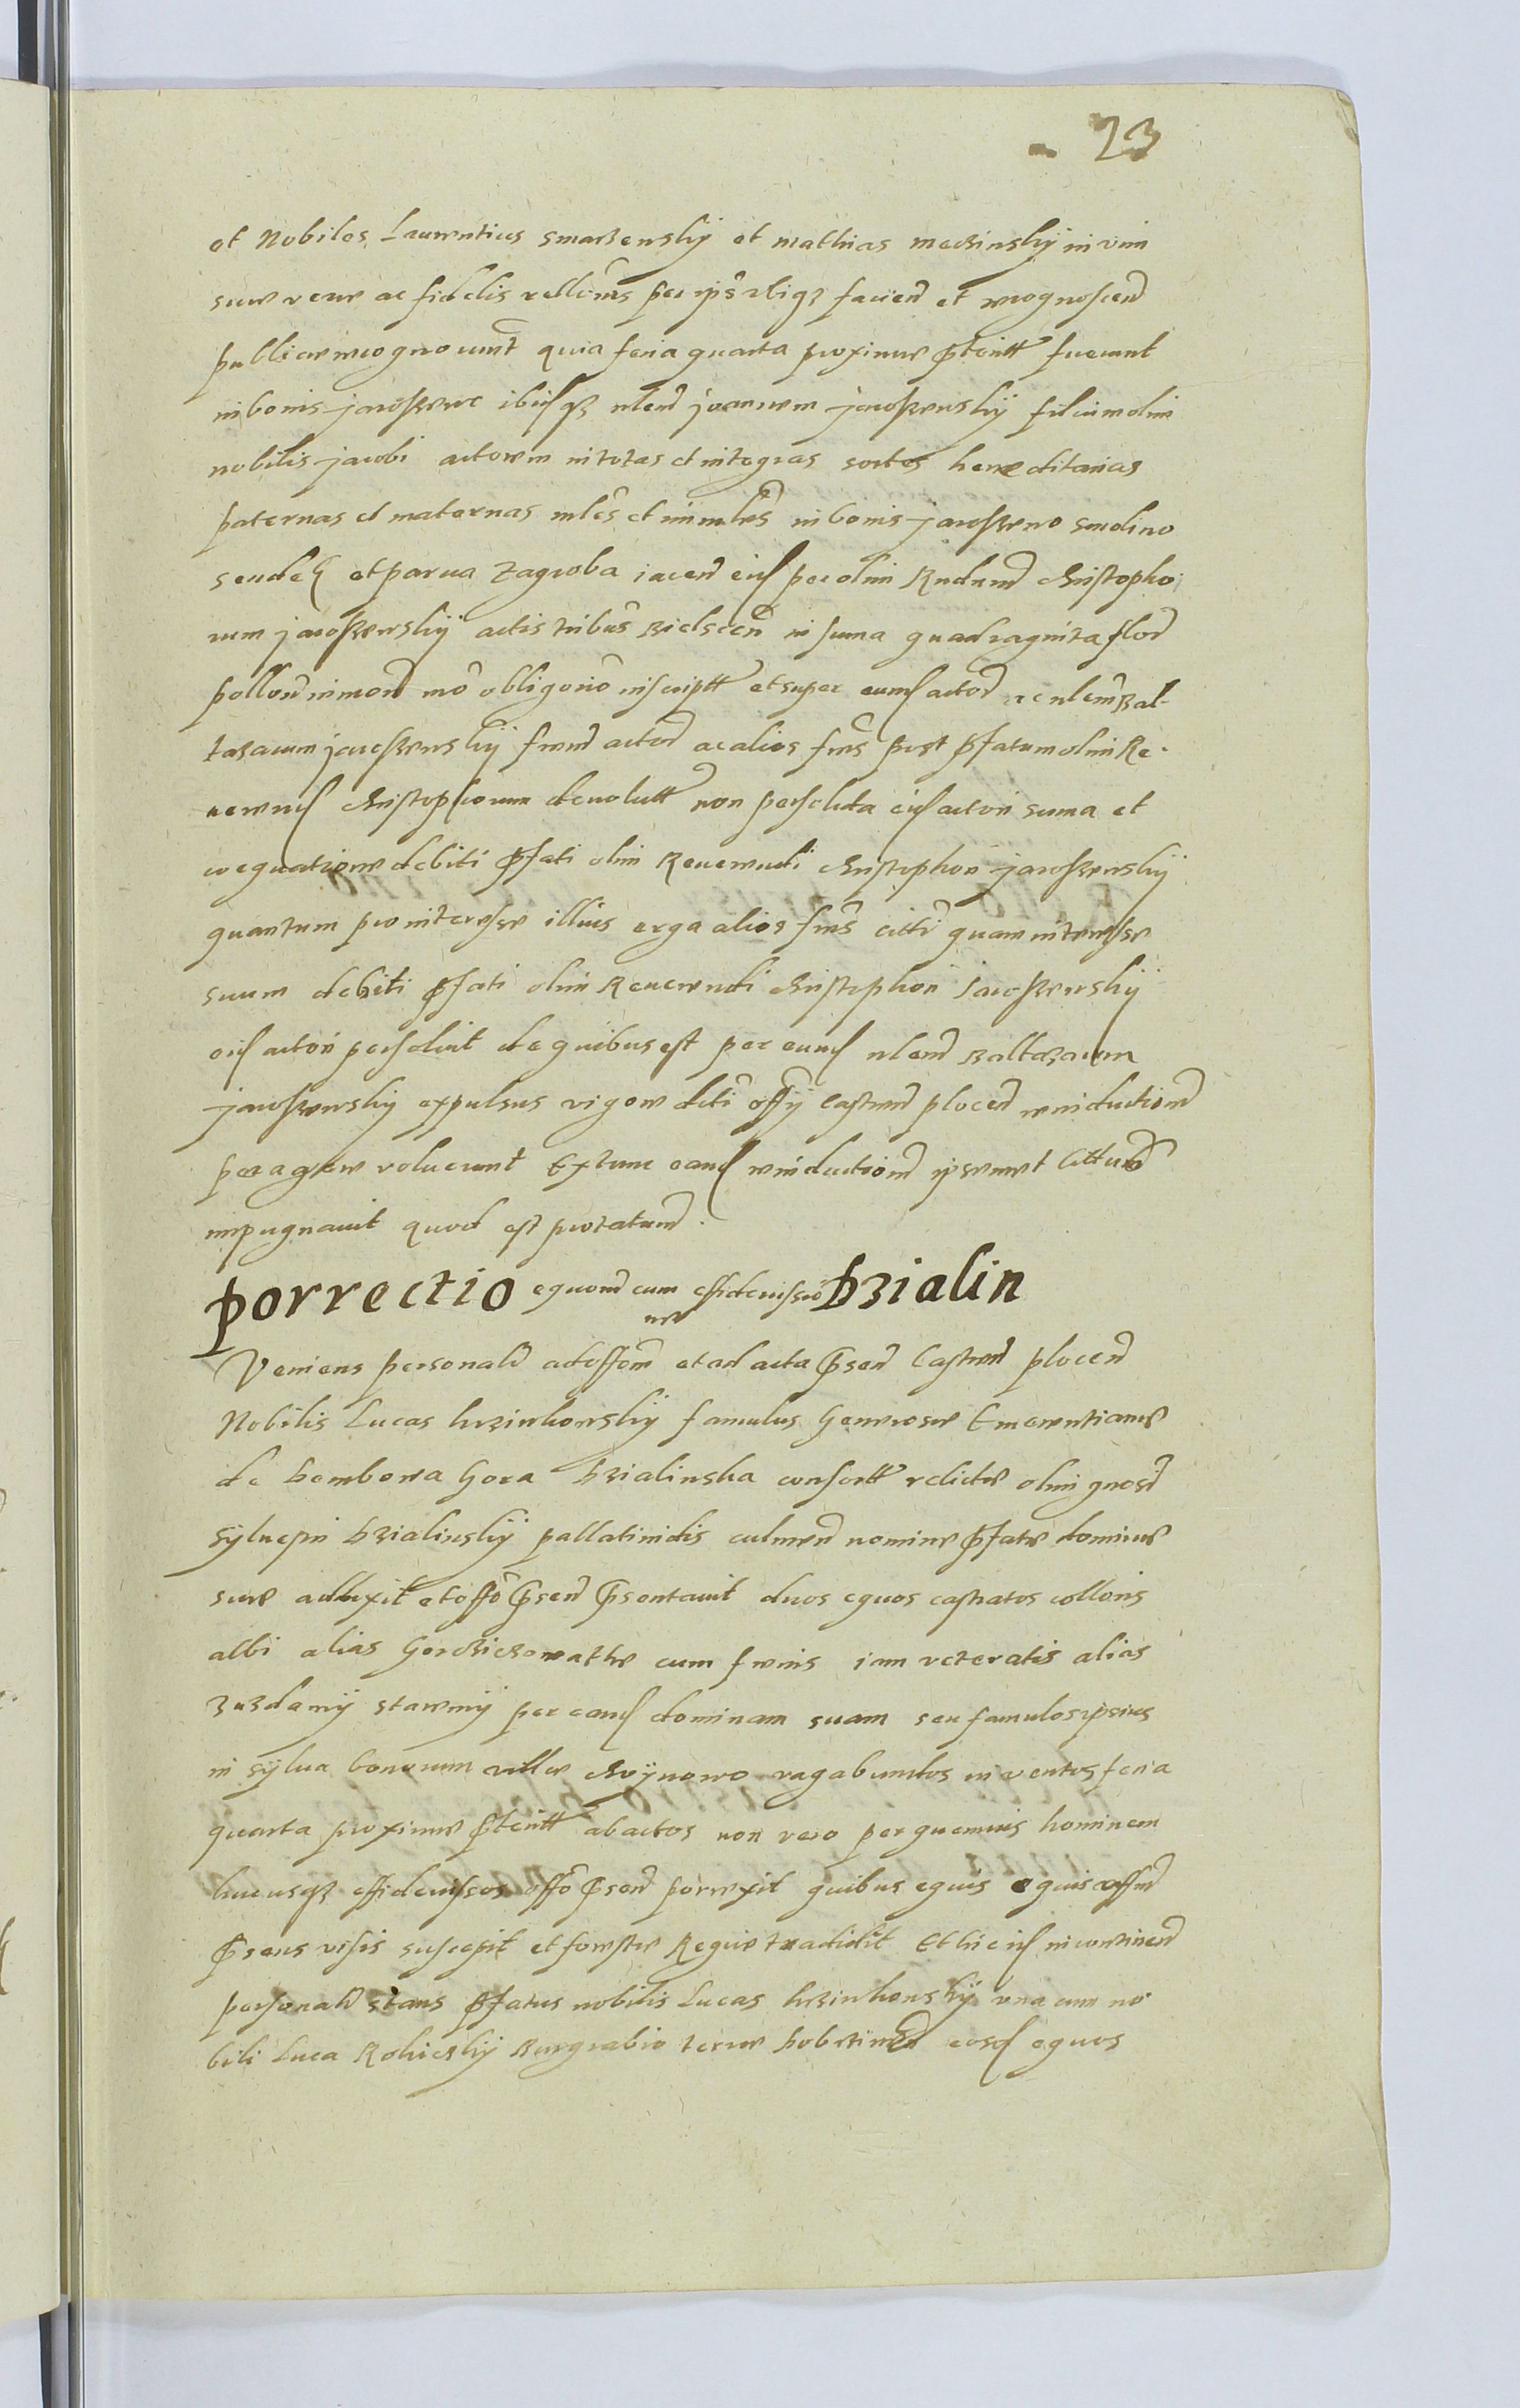 23
et Nobiles Laurentius Smarzenskij et mathias meczinskij in vim
sue vere ac fidelis rellōnis per ipōs ibiqȝ faciend et recognoscend
publice recognouerūt quia feria quarta proxime p̄terittͣ fuerunt
in bonis jaroszewe ibidqȝ nlem̄ joannem jaroszewskij filium olim
nobilis jacobi actorem in totas et integras sortes hereditarias
paternas et maternas mlēs et immlēs in bonis jaroszewo smolino
sendek et parua Zagroba iacen eid per olim Rudum̄ christopho
rum jaroszewskij actis tribus Bielscen̄ in suma quadraginta flor̄
pollon̄ in mon̄ mō obligorio inscriptt et super eund actor̄ ac nlem̄ Bal-
tazarum jaroszewskij frem̄ actor̄ ac alios frēs post p̄fatum olim Re-
uerend christophorum deuolutt non persoluta eid actori suma et
coequatione debiti p̄fati olim Reuerendi christophori jaroszewskij
quantum pro interesse illius erga alios frēs citti quam interesse
suum debiti p̄fati olim Reuerendi christophori Jaroszewskij
eid actori persoluit de quibus est per eund nlem̄ Baltazarum
jaroszewskij expulsus vigore dicti offij Castren̄ plocen̄ reinductionē
peragere voluerunt Extunc eand reinductionē ipsemet Citta
impugnauit quod est protatum̄.
Porrectio equorū cum effidenisscio Bzialin
ne
Veniens personalr̄ ad offm̄ et ad acta p̄sen̄ Castren̄ plocen̄
Nobilis Lucas krzinkowskij famulus Generose Emerentiane
de Dembowa Gora Bzialinska consortt relicte olim gnosi
Syluepri Bzialinskij pallatinidis culmen̄ nomine p̄fate domine
sue adduxit et offō p̄sen̄ p̄sentauit duos equos castratos colloris
albi alias Gorcziczowathe cum frenis iam veteratis alias
zuzdamij staremij per eand dominam suam seu famulos ipsius
in sylua bonorum ville choynowo vagabundos inuentos feria
quarta proxime p̄teritt abactos non vero per quemuis hominem
hucusqȝ effidenissos offō p̄sen̄ porrexit quibus equis equis offm̄
p̄sens visis suscepit et foreste Regie tradidit Et hic id incontinen̄
personalr̄ stans p̄fatus nobilis Lucas krzinkowskij vna cum no
bili Luca Rokickij Burgrabio terre Dobrzinen̄ eosd equos